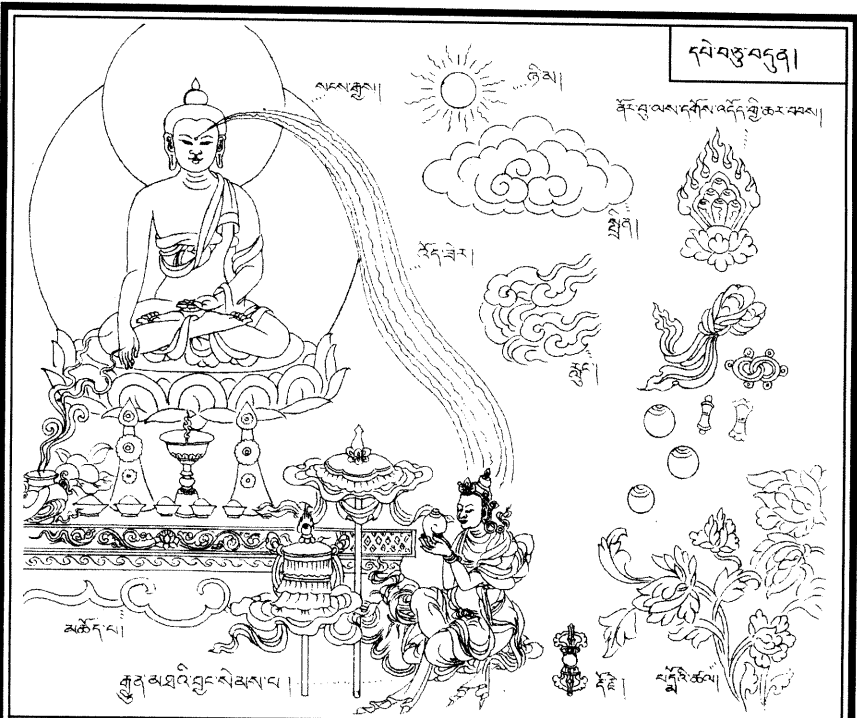 དཔེ་བཅུ་བདུན།
སངས་རྒྱས།
ཉི་མ།
ནོར་བུ་ལས་དགོས་འདོད་ཀྱི་ཆར་བབས།
སྤྲིན།
འོད་ཟེར།
རླུང་།
མཆོད་པ།
རྒྱུན་མཐའི་བྱང་སེམས་པ།
རྡོ་རྗེ།
པདྨའི་ཚལ།